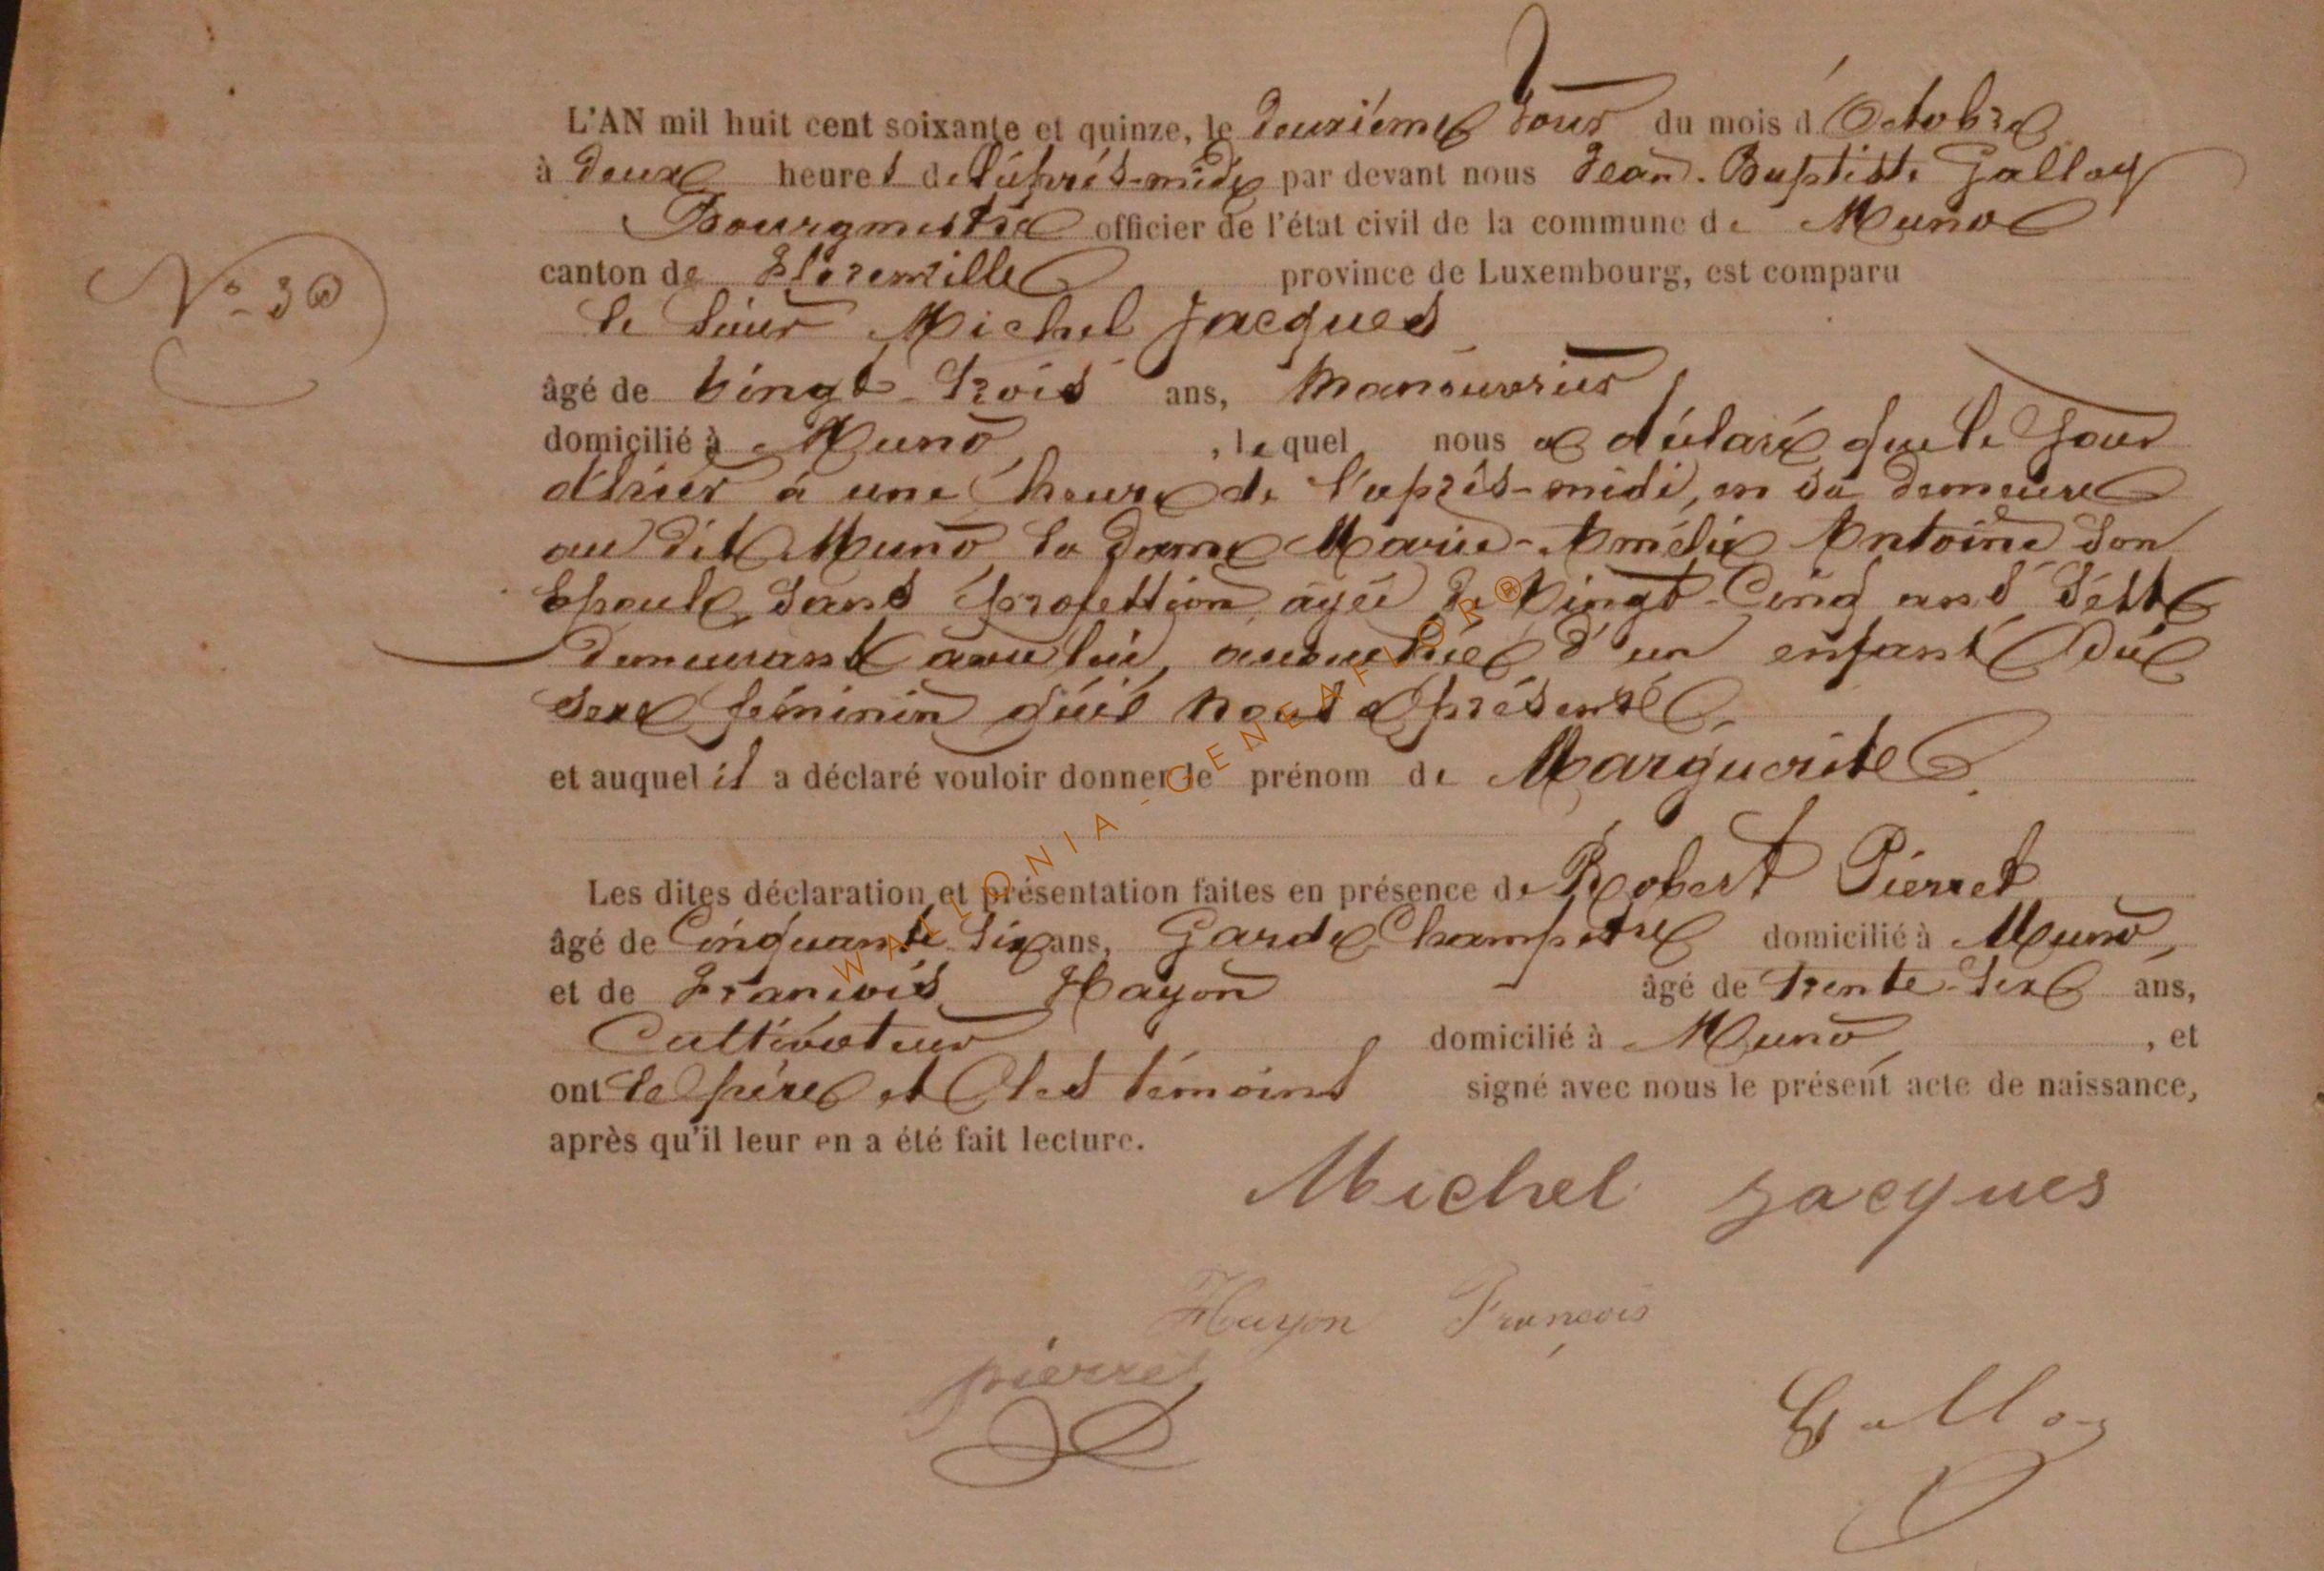 L'AN mil huit cent soixante et quinze, le deuxième Jour du mois d'Octobre
à deux heures de l'après-midi par devant nous Jean-Baptiste Galloy
Bourgmestre officier de l'état civil de la commune de Muno
N° 30
canton de Florenville province de Luxembourg, est comparu
le sieur Michel Jacques
âgé de vingt-trois ans, Manouvrier
domicilié à Muno, lequel nous a déclaré que le Jour
d'hier à une heure de l'après-midi, en sa demeure
au dit Muno la Dame Marie-Amélie Antoine son
Epouse, sans profession, agée de vingt-cinq ans
demeurant avec lui, d'un enfant du
sexe féminin qu'il nous a présenté
et auquel il a déclaré vouloir donner le prénom de Marguerite.
Les dites déclaration et présentation faites en présence de Robert Pierret
âgé de Cinquante Six ans, Garde Champetre domicilié à Muno,
et de François Hayon âgé de trente-six ans,
Cultivateur domicilié à Muno, et
ont le père et les témoins signé avec nous le présent acte de naissance,
après qu'il leur en a été fait lecture.
Michel Jacques
Hayon François
pierret
Galloy
WALLONIA-GENEAFLOR®